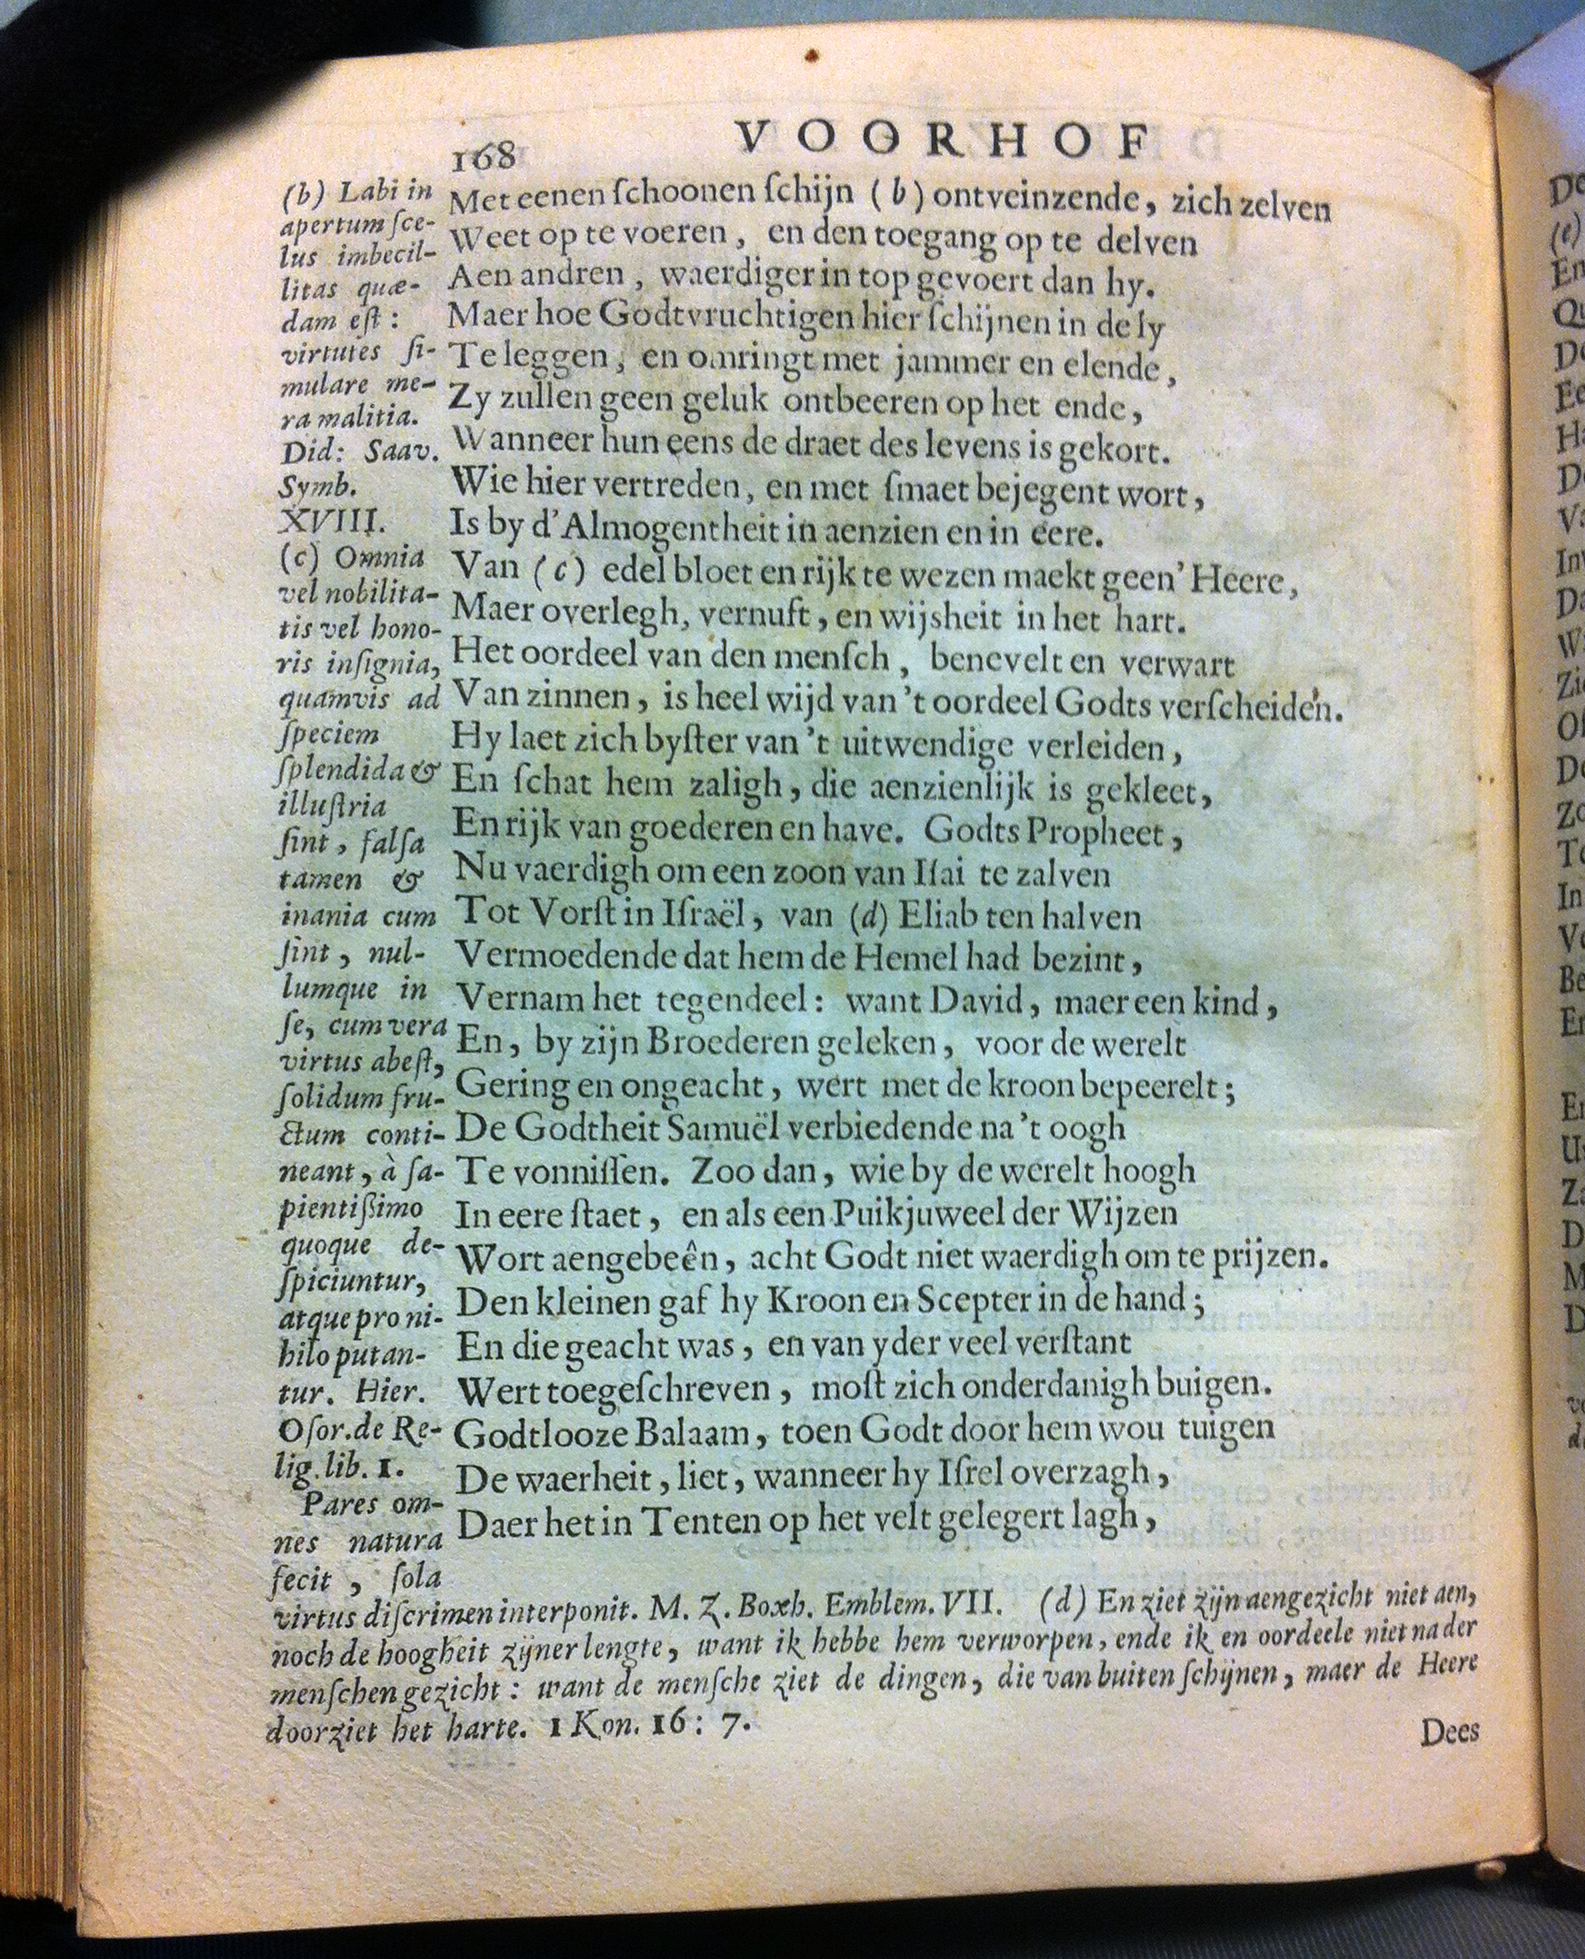 168 VOORHOF
Met eenen ſchoonen ſchijn (b) ontveinzende, zich zelven
Weet op te voeren, en den toegang op te delven
Aen andren, waerdiger in top gevoert dan hy.
Maer hoe Godtvruchtigen hier ſchijnen in de ly
Te leggen, en omringt met jammer en elende,
Zy zullen geen geluk ontbeeren op het ende,
Wanneer hun eens de draet des levens is gekort.
Wie hier vertreden, en met ſmaet bejegent wort,
Is by d'Almogentheit in aenzien en in eere.
Van (c) edel bloet en rijk te wezen maekt geen' Heere,
Maer overlegh, vernuft, en wijsheit in het hart.
Het oordeel van den menſch, benevelt en verwart
Van zinnen, is heel wijd van 't oordeel Godts verſcheiden.
Hy laet zich byſter van 't uitwendige verleiden,
En ſchat hem zaligh, die aenzienlijk is gekleet,
En rijk van goederen en have. Godts Propheet,
Nu vaerdigh om een zoon van Iſai te zalven
Tot Vorſt in Iſraël, van (d) Eliab ten halven
Vermoedende dat hem de Hemel had bezint,
Vernam het tegendeel: want David, maer een kind,
En, by zijn Broederen geleken, voor de werelt
Gering en ongeacht, wert met de kroon bepeerelt;
De Godtheit Samuël verbiedende na 't oogh
Te vonniſſen. Zoo dan, wie by de werelt hoogh
In eere ſtaet, en als een Puikjuweel der Wijzen
Wort aengebeên, acht Godt niet waerdigh om te prijzen.
Den kleinen gaf hy Kroon en Scepter in de hand;
En die geacht was, en van yder veel verſtant
Wert toegeſchreven, moſt zich onderdanigh buigen.
Godtlooze Balaam, toen Godt door hem wou tuigen
De waerheit, liet, wanneer hy Iſrel overzagh,
Daer het in Tenten op het velt gelegert lagh,
(b) Labi in
apertum ſce-
lus imbecil-
litas quæ-
dam eſt:
virtutes ſi-
mulare me-
ra malitia.
Did: Saav.
Symb.
XVIII.
(c) Omnia
vel nobilita-
tis vel hono-
ris inſignia,
quamvis ad
ſpeciem
ſplendida &
illuſtria
ſint, falſa
tamen &
inania cum
ſint, nul-
lumque in
ſe, cum vera
virtus abeſt,
ſolidum fru-
ctum conti-
neant, à ſa-
pientißimo
quoque de-
ſpiciuntur,
atque pro ni-
hilo putan-
tur. Hier.
Oſor. de Re-
lig. lib. 1.
Pares om-
nes natura
fecit, ſola
virtus diſcrimen interponit. M. Z. Boxh. Emblem. VII. (d) En ziet zijn aengezicht niet aen,
noch de hoogheit zijner lengte, want ik hebbe hem verworpen, ende ik en oordeele niet na der
menſchen gezicht: want de menſche ziet de dingen, die van buiten ſchijnen, maer de Heere
doorziet het harte. 1 Kon. 16: 7.
Dees